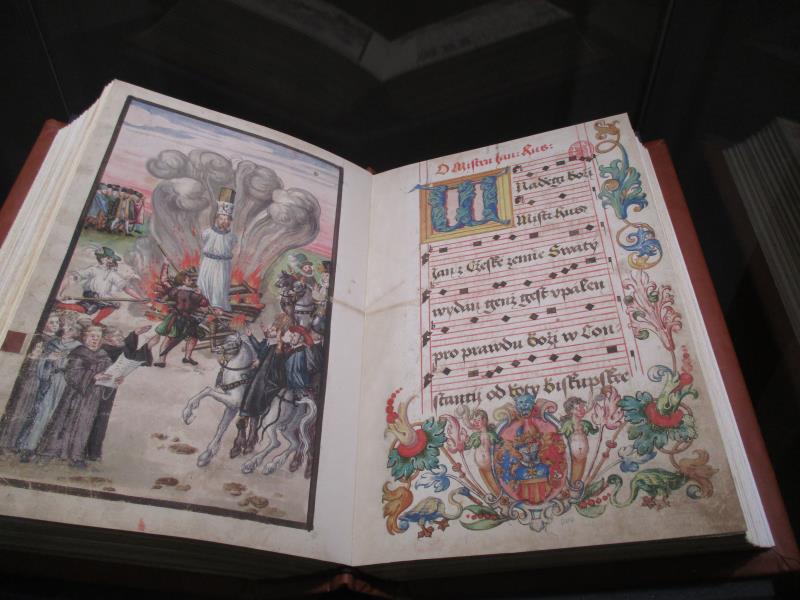 O Mistru Jan: Hus:
W Nadegi boží
Mistr Hus
Jan z Cžeske zemie Swaty
wydan genž gest vpalen
pro prawdu boži w Con-
stantij od roty biskupske